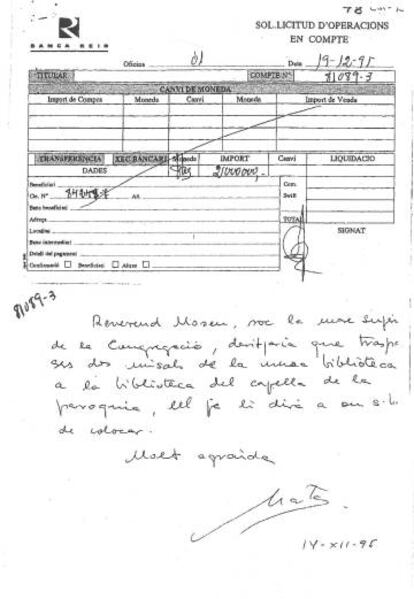 R
BANCA REIG
SOL.LICITUD D'OPERACIONS
EN COMPTE
Oficina 01 Data 19-12-95
TITULAR COMPTE Nº 81089-3
CANVI DE MONEDA
Import de Compra Moneda Canvi Moneda Import de Venda
TRANSFERÈNCIA XEC BANCARI Moneda IMPORT Canvi LIQUIDACIO
DADES Ptes 2.000.000,-
Beneficiari Com.
Cte. Nº AA Swift
Banc beneficiari
Adreça TOTAL
Localitat SIGNAT
Banc intermediari
Detall del pagament
Confirmació Beneficiari Altres
81089-3
Reverend Mosen, soc la mare superiora
de la Congregació, desitjaria que traspassés
dos misals de la meva biblioteca
a la biblioteca del capellà de la
parroquia, ell ja li dirà a on s.ha
de colocar.
Molt agraida
Marta